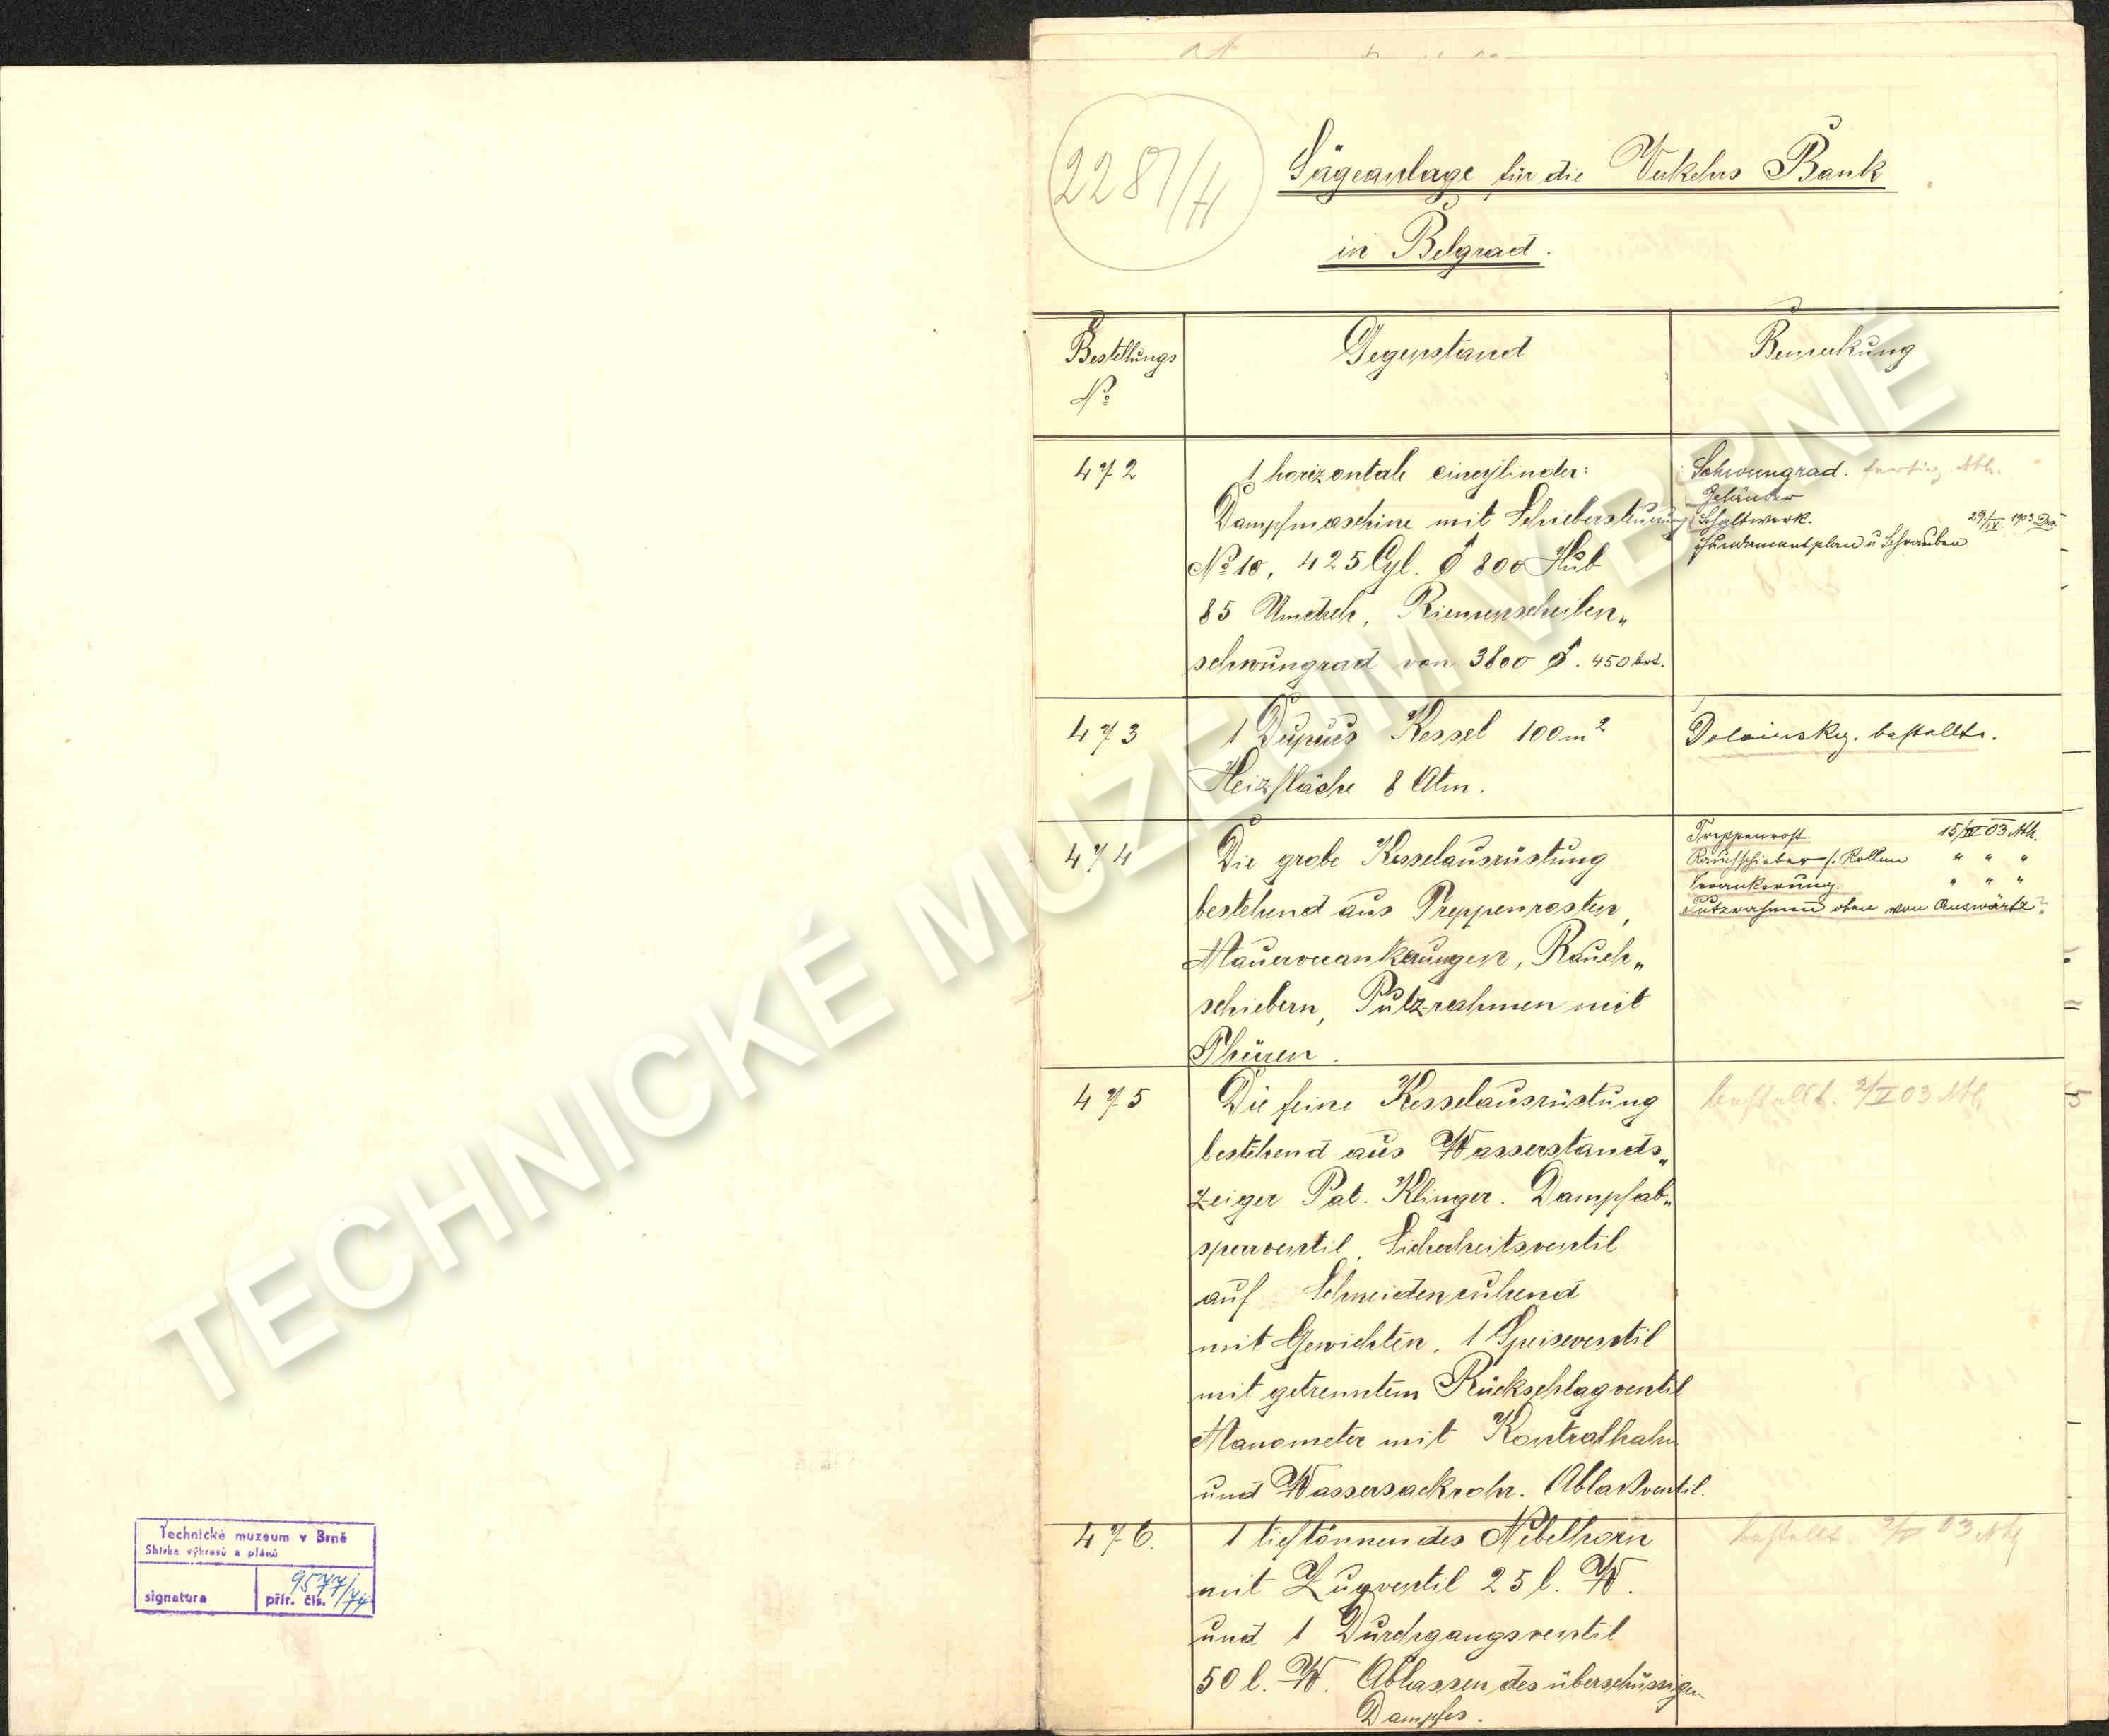 2287/H
Sägeanlage für die Verkehrs Bank
in Belgrad.
Bestellungs
No
Gegenstand
Bemerkung
472
1 horizontale eincylinder:
Dampfmaschine mit Schiebersteuerung
No 10, 425 Cyl. ∅ 800 Hub
85 Umdreh, Riemenscheiben„
schwungrad von 3800 ∅. 450 brt.
Schwungrad. fertig
Geländer
Schaltwerk. 29/IV. 1903
Fundamentplan u Schrauben
473
1 Dupuis Kessel 100 m2
Heizfläche 8 Atm.
bestellt.
474
Die grobe Kesselausrüstung
bestehend aus Treppenrosten,
Mauerverankerungen, Rauch„
schiebern, Putzrahmen mit
Thüren.
Treppenrost 03
Rauchschieber f. Rollen " " "
Verankerung. " " "
Putzrahmen oben von Auswärts?
475
Die feine Kesselausrüstung
bestehend aus Wasserstands„
zeiger Pat. Klinger. Dampfab„
sperrventil, Sicherheitsventil
auf Schneiden ruhend
mit Gewichten, 1 Speiseventil
mit getrenntem Rückschlagventil
Manometer mit Kontrolhahn
und Wassersackrohr. Ablaßventil.
bestellt. 03
476.
1 tieftönnendes Nebelhorn
mit Zugventil 25 l. W.
und 1 Durchgangsventil
50 l. W. Ablassen des überschüssigen
Dampfes.
bestellt 03
Technické muzeum v Brně
Sbírka výkresů a plánů
signatura
přír. čís.
TECHNICKÉ MUZEUM V BRNĚ